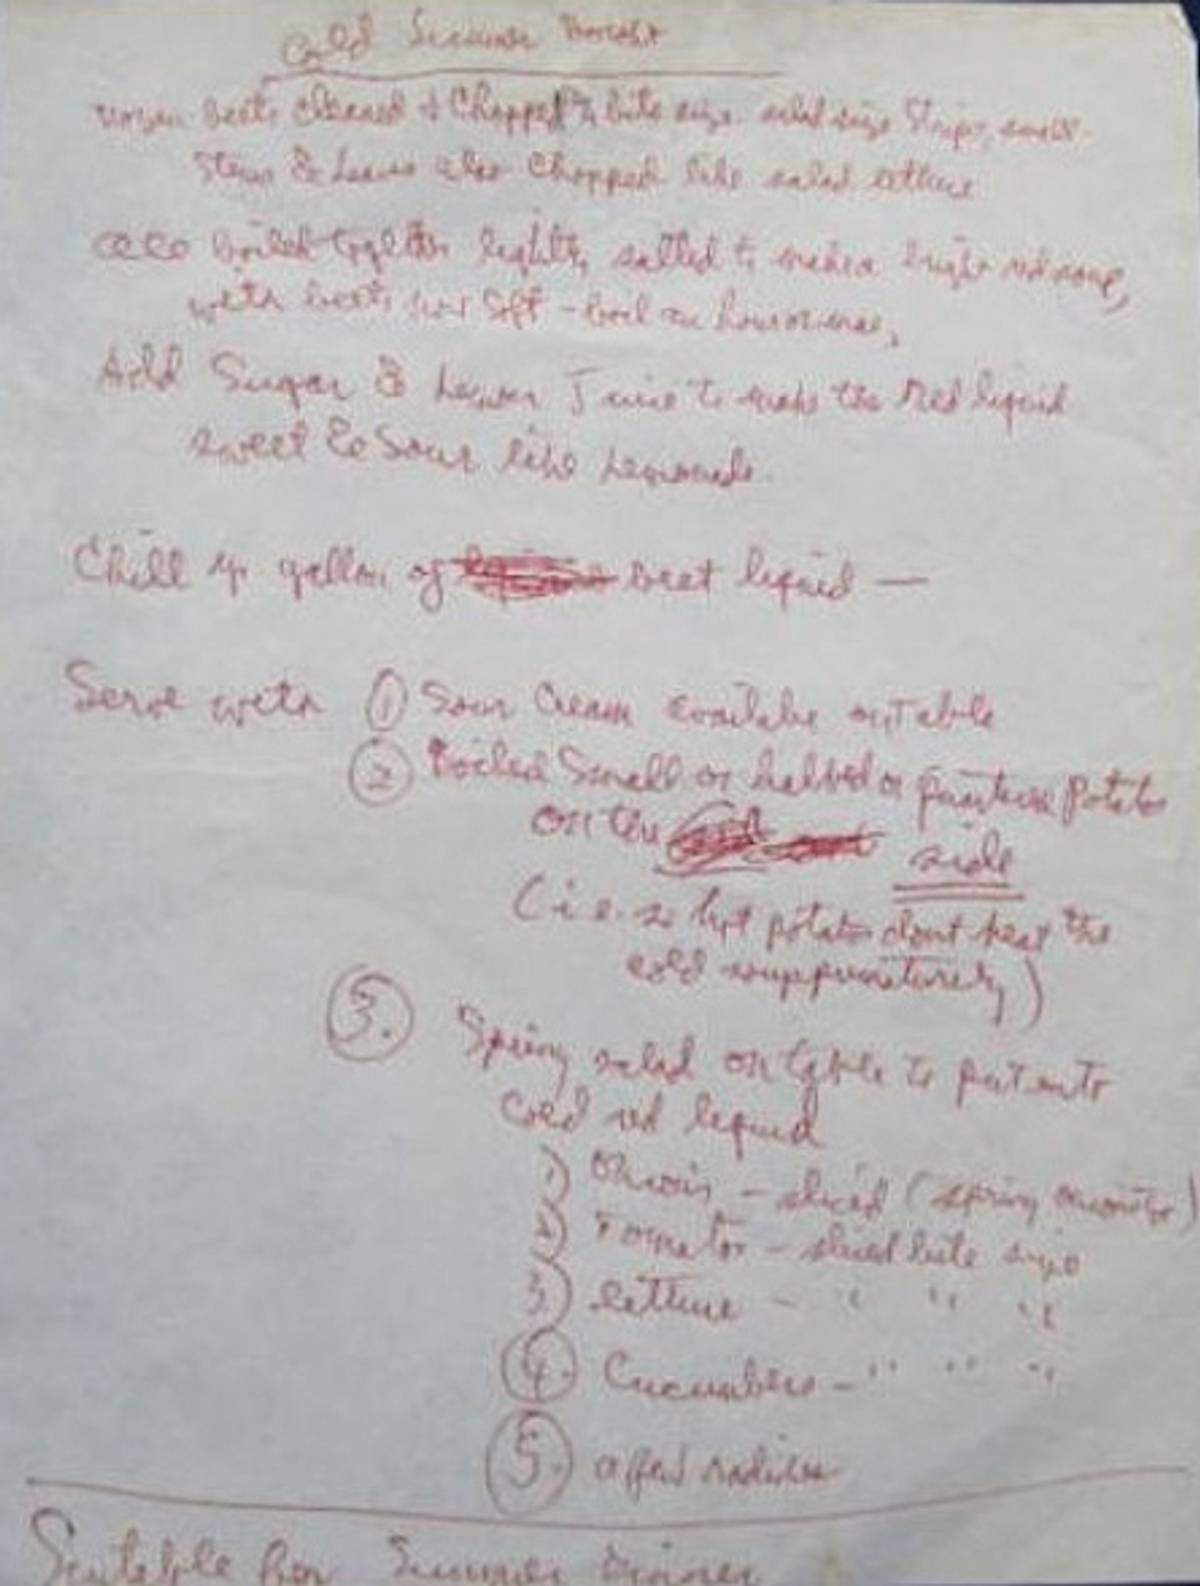 Cold Summer Borscht
Dozen beets cleaned & Chopped to bite size salad size Strips, small
Stems & Leaves also Chopped like salad lettuce
all boiled together lightly salted to make a bright red soup,
with beets now Soft - boil an hour or more,
Add Sugar & Lemon Juice to make the Red liquid
sweet & Sour like Lemonade.
Chill up gallon of beet liquid —
Serve with ① Sour Cream available on table
② Boiled Small or halved or potato
on the side
(i.e. so hot potatoes don't heat the
cold soup prematurely)
③. Spring salad on table to put into
cold red liquid
1) Onions - sliced (spring onions)
2) Tomatos - sliced bite size
3) lettuce - " " "
④. Cucumbers - " " "
⑤. a few radishes
Suitable for Summer Dinner